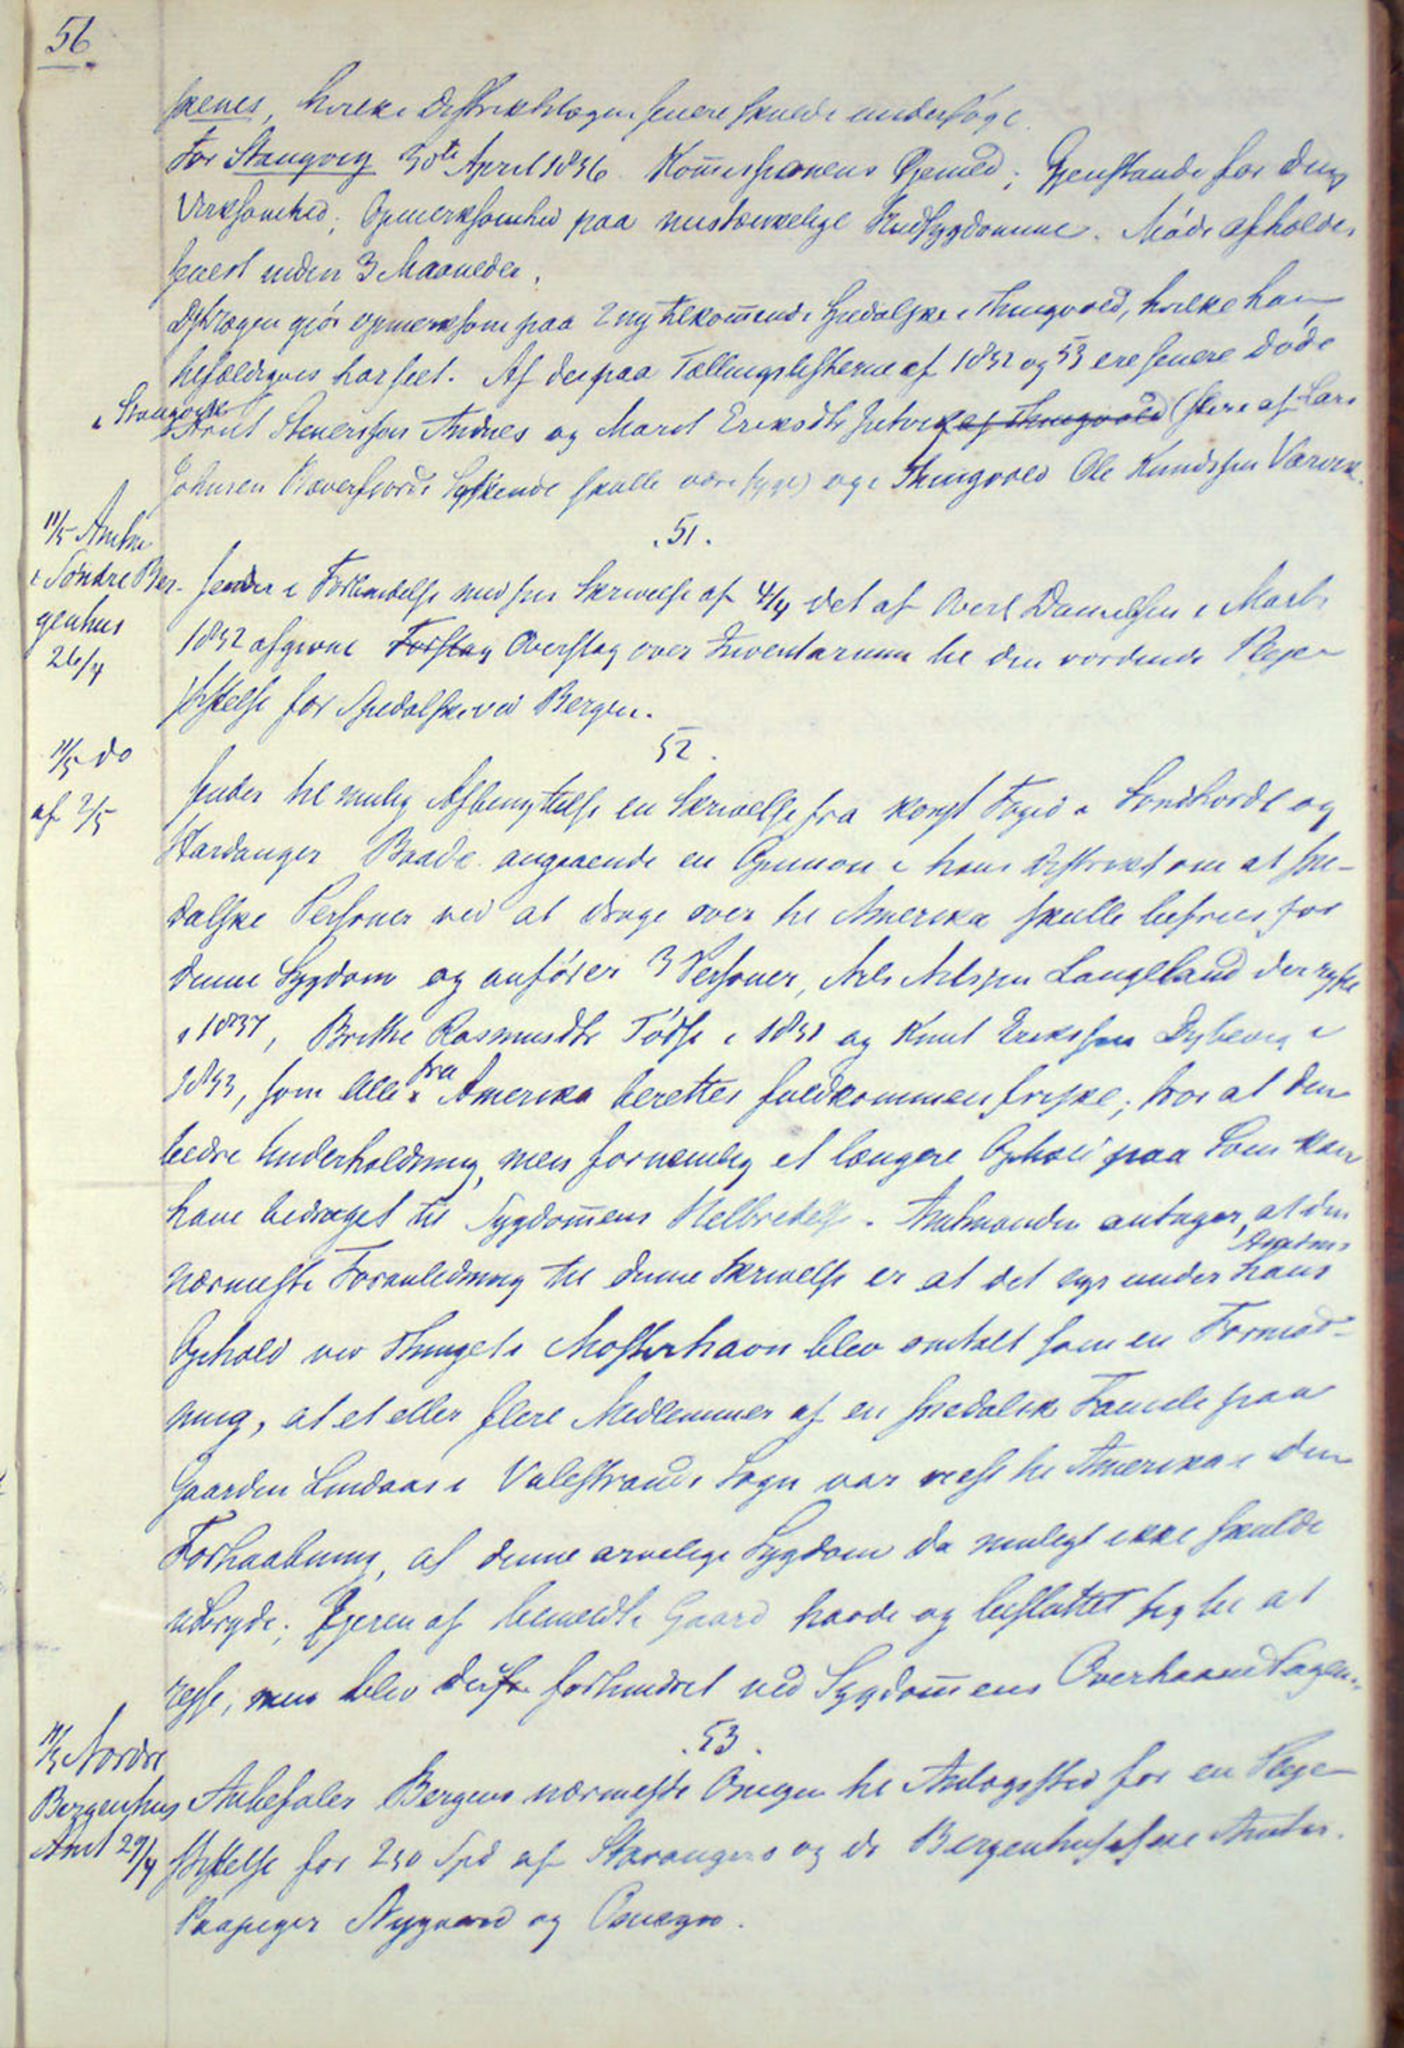 56
skenes, hvilke Distriktslægen senere skulde undersøge.
For Stangvig 30te April 1856. Kommissionens Øjemed; Gjenstande for dens
Virksomhed; Opmerksomhed paa mistænkelige Hudsygdomme. Møde afholdes
senest inden 3 Maaneder.
Dstrlægen gjør opmerksom paa 2 ny tilkommende Spedalske i Thingvold, hvilke han
har seet. Af de paa Tællingslisterne af 1852 og 53 ere senere døde
i Stangvig
Arnt Sivertsen Andnes og Marit Eriksdtr af Thingvold (flere af Lars
Johnsen Søskende skulle være syge) og i Thingvold Ole Knudssen
.51.
11/5 Amtm
i Söndre Ber-
genhus
26/4
sender i Forbindelse med sin Skrivelse af 4/4 det af Overl Danielsen i Marts
1852 afgivne Forslag Overslag over Inventarium til den vordende Pleje-
stiftelse for Spedalske ved Bergen.
52.
11/5 do
af 2/5
sender til mulig Afbenyttelse en Skrivelse fra konst Foged i Söndhordl og
Hardanger Baade angaaende en Opinion i hans Distrikt om at spe-
dalske Personer ved at drage over til Amerika skulle befries for
denne Sygdom og anfører 3 Personer, Nils Nilsen Langeland der rejste
i 1837, Brithe Rasmusdtr i 1851 og Knut Erikssen Dybevig i
1853, som Alle fra Amerika berettes fuldkommen friske; hvor at den
bedre Underholdning, men fornemlig et længere Ophold paa Søen kan
have bidraget til Sygdommens Helbredelse. Amtmanden antager, at den
nærmeste Foranledning til denne Skrivelse er at det under hans Amtms
Ophold ved Thinget i Mosterhavn blev omtalt som en Formod-
ning, at et eller flere Medlemmer af en spedalsk Familie paa
Gaarden Lindaas i Valestrands Sogn var rejst til Amerika i den
Forhaabning, at denne arvelige Sygdom da muligt ikke skulde
udbryde; Ejeren af bemeldte Gaard havde og besluttet sig til at
rejse, men blev forhindret ved Sygdommens Overhaandtagen.
.53.
11/5 Nordre
Bergenhus
Amt 29/4
Anbefaler Bergens nærmeste Omegn til Anlægssted for en Pleje-
stiftelse for 250 Spd af Stavangers og de Bergenhusiske Amter.
Paapeger Nygaard og